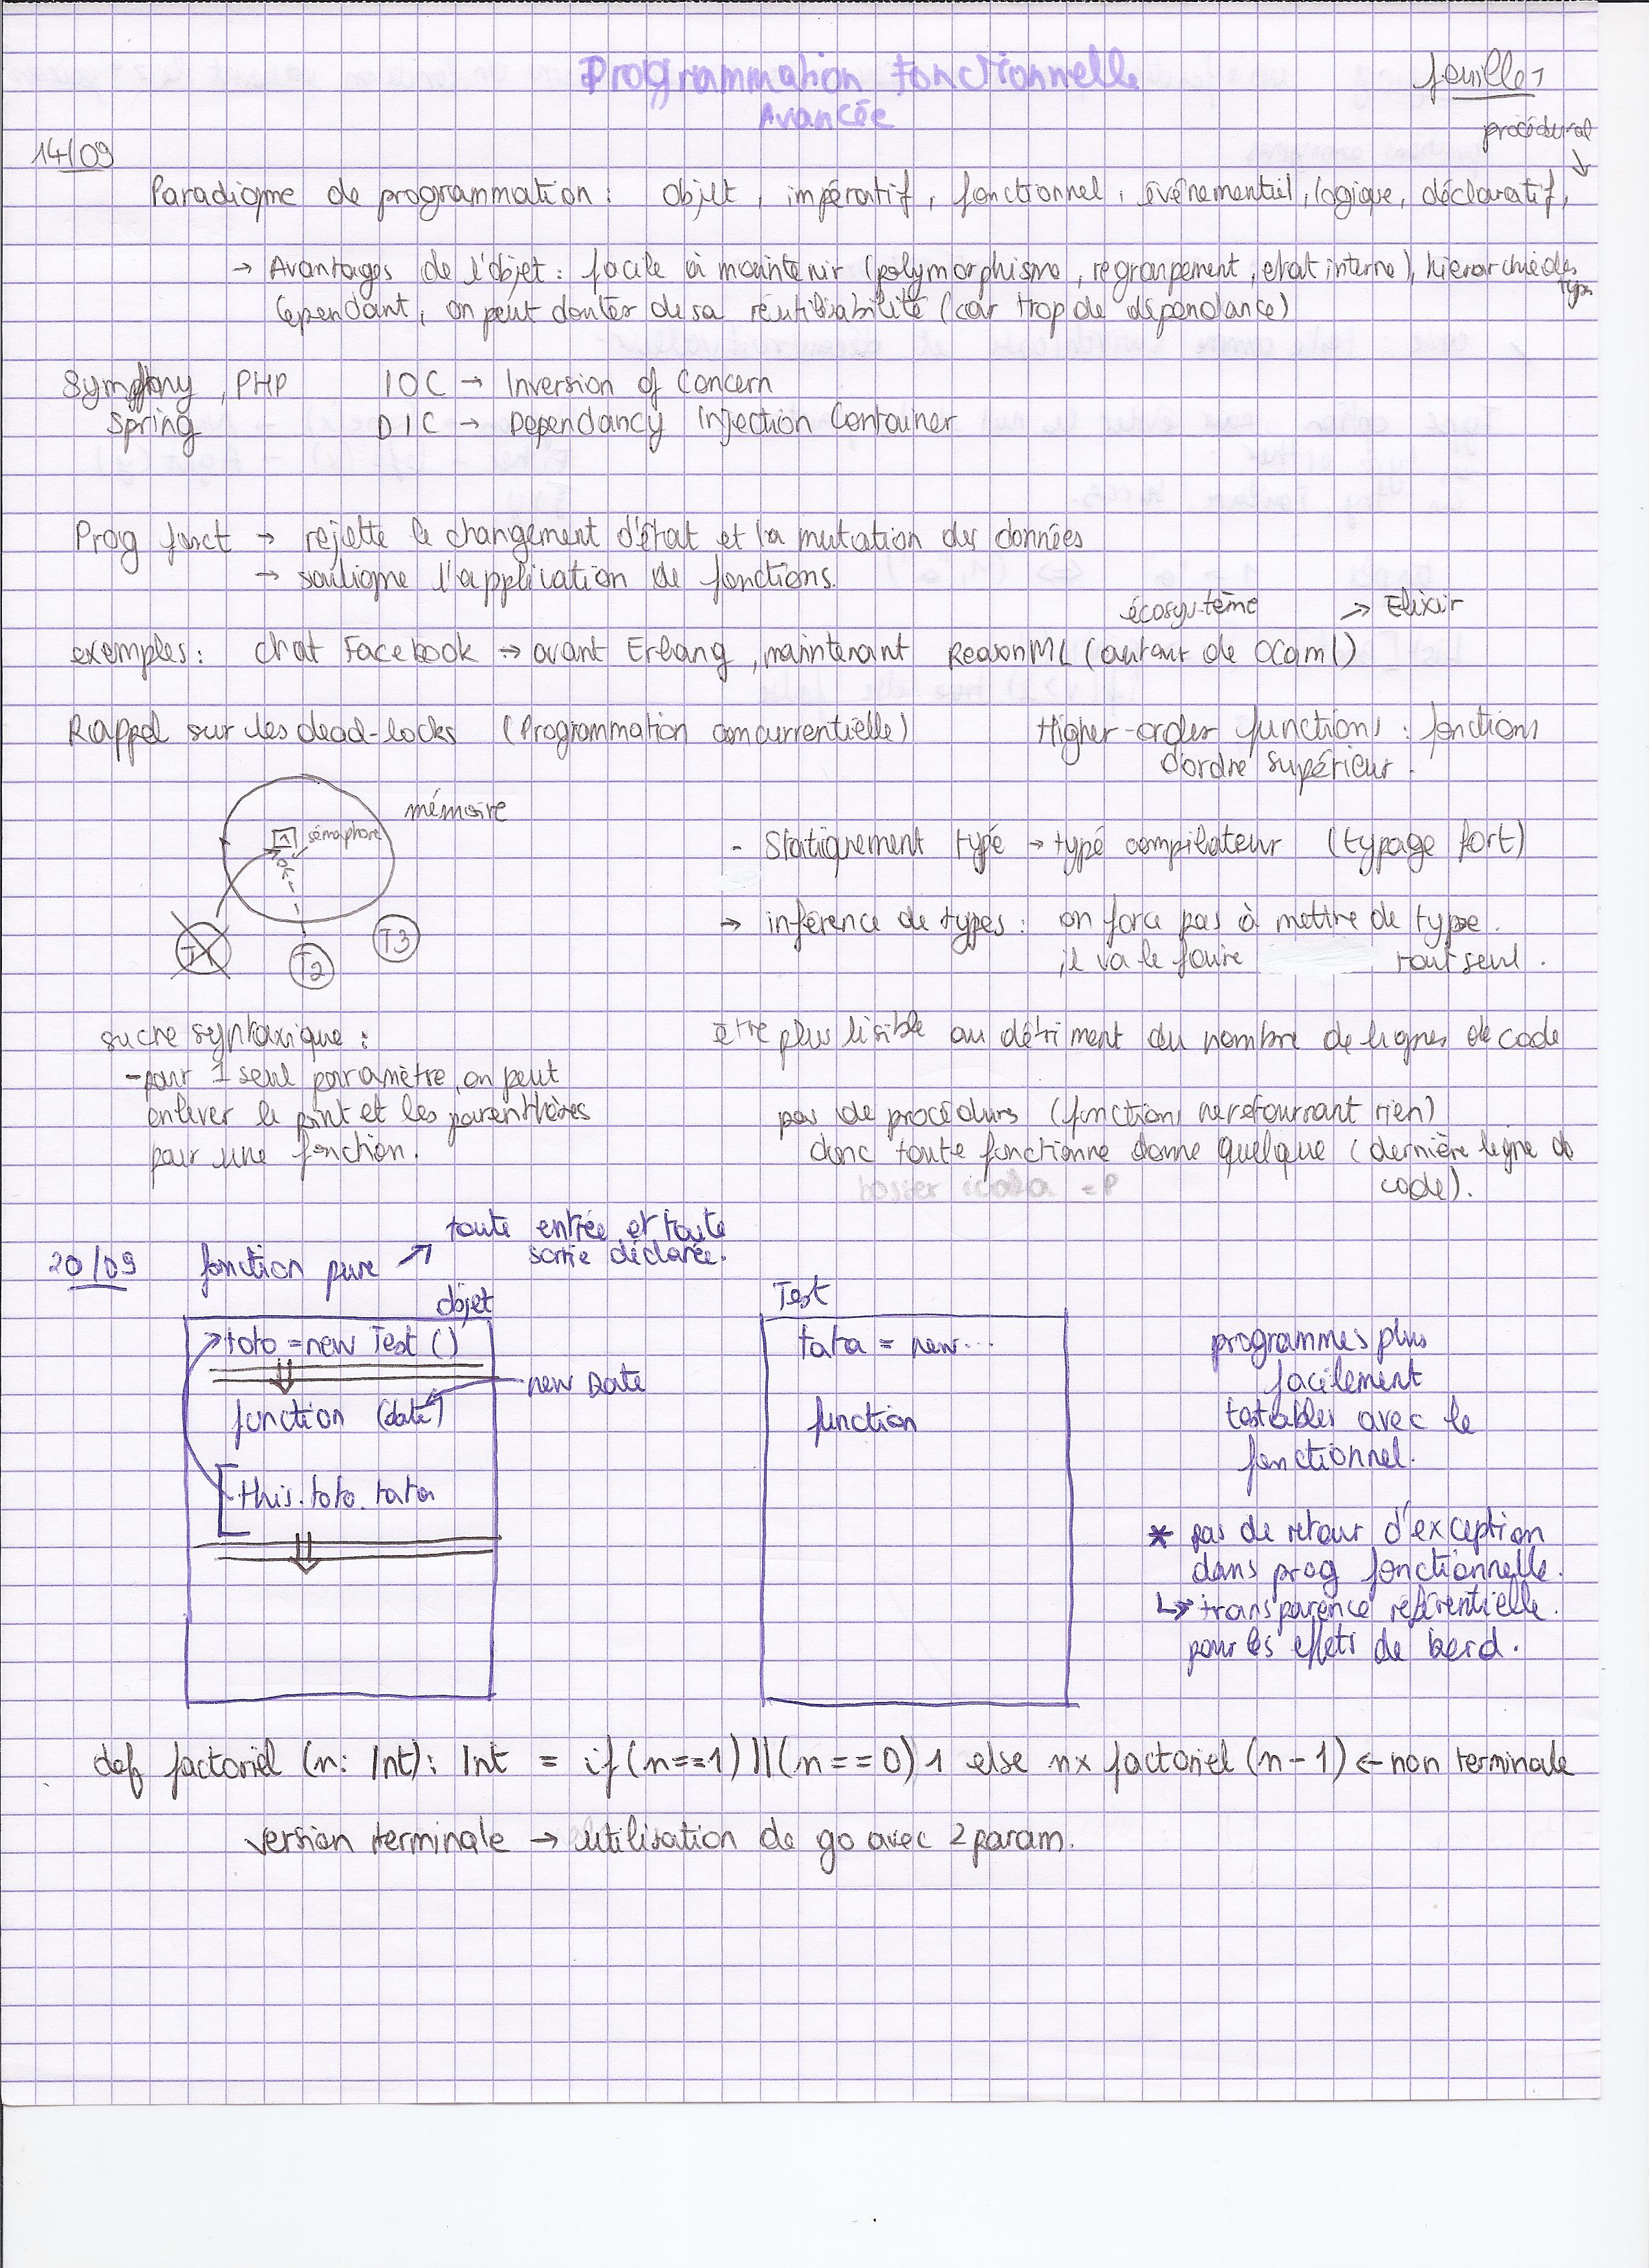 Programmation fonctionnelle
Avancée
feuille 1
procédural
↓
14/09
Paradigme de programmation : Objet, impératif, fonctionnel, événementiel, logique, déclaratif,
→ Avantages de l'objet : facile à maintenir (polymorphisme, regroupement, etat interne), hierarchie des types
Cependant, on peut douter de sa réutilisabilité (car trop de dépendance)
Symfony, PHP IOC → Inversion of Concern
Spring DIC → Dependancy Injection Container
Prog fonct → rejette le changement d'état et la mutation des données
→ souligne l'application de fonctions.
écosystème → Elixir
exemples : chat Facebook → avant Erlang, maintenant ReasonML (autour de OCaml)
Rappel sur les dead-locks (Programmation concurrentielle)
Higher-order functions : fonctions
d'ordre supérieur.
mémoire
1 sémaphore
T1
T2
T3
- Statiquement typé → typé compilateur (typage fort)
→ inférence de types : on force pas à mettre de type.
il va le faire tout seul.
sucre syntaxique :
- pour 1 seul paramètre, on peut
enlever le point et les parenthèses
pour une fonction.
être plus lisible au détriment du nombre de lignes de code
pas de procédurs (fonctions ne retournant rien)
donc toute fonctionne donne quelque (dernière ligne de
code).
20/09 fonction pure ↗ toute entrée et toute
sortie déclarée.
objet
toto = new Test ()
⇓
new Date
fonction (date)
this.toto.tata
⇓
Test
tata = new...
function
programmes plus
facilement
testables avec le
fonctionnel.
* pas de retour d'exception
dans prog fonctionnelle.
↳ transparence référentielle.
pour les effets de bord.
def factoriel (n: Int): Int = if (n==1) || (n==0) 1 else n x factoriel (n-1) ← non terminale
version terminale → utilisation de go avec 2 param.